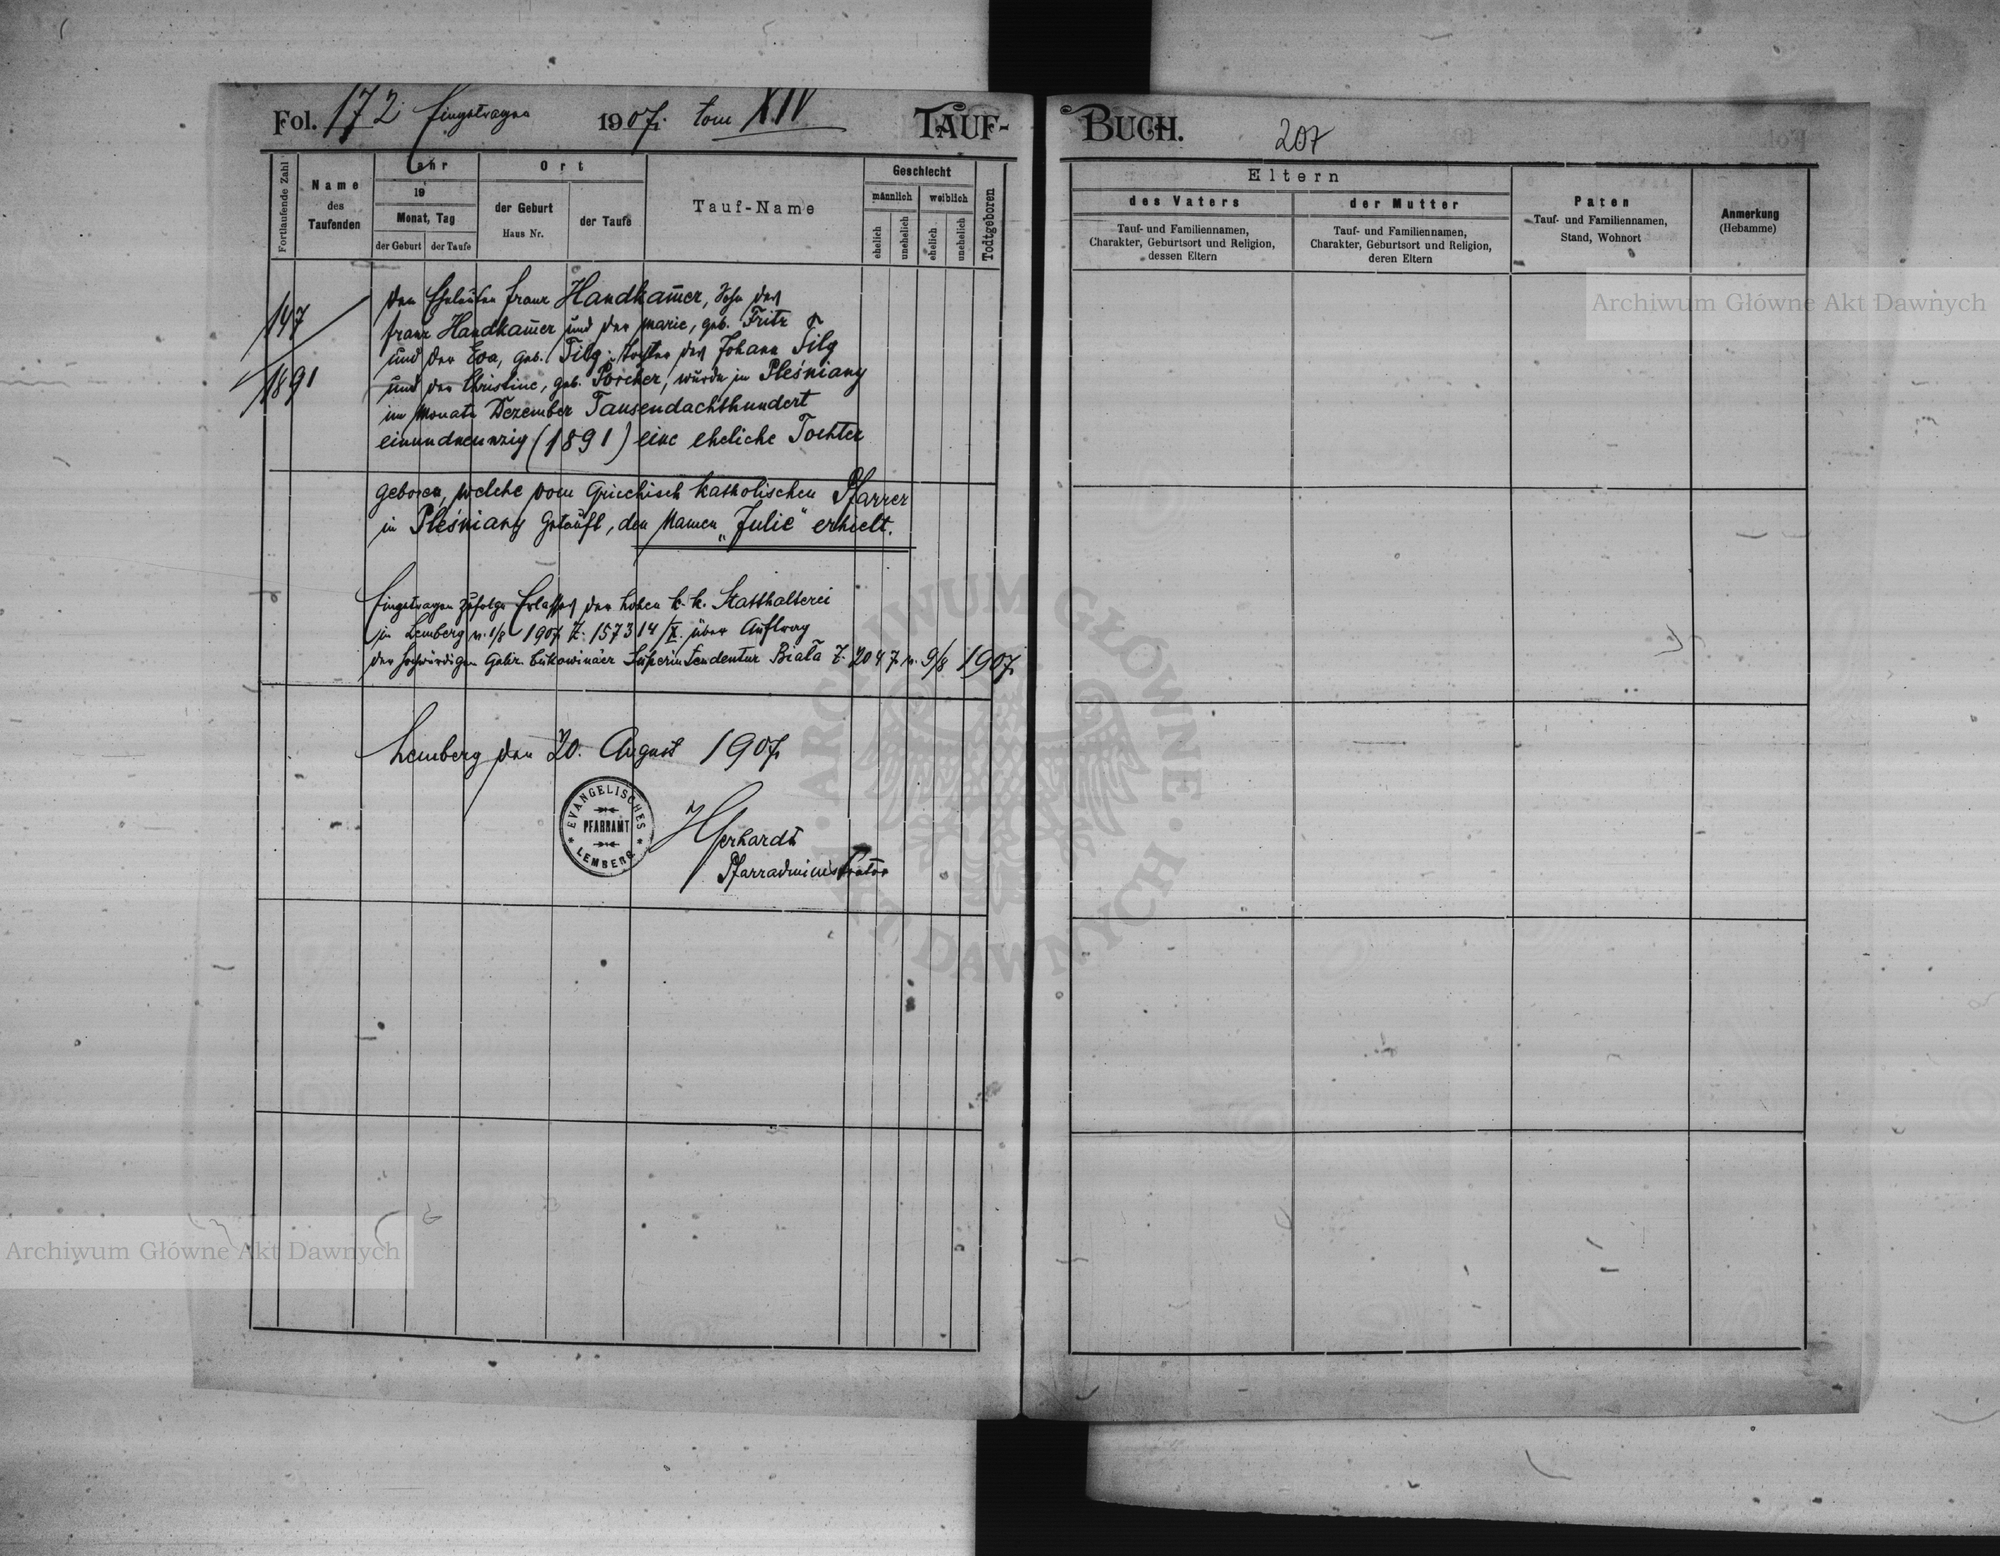 Fol. 172 Eingetragen 1907. tom XIV TAUF-
BUCH. 207
Fortlaufende Zahl
Name
des
Taufenden
Jahr
19
Monat, Tag
der Geburt
der Taufe
Ort
der Geburt
Haus Nr.
der Taufe
Tauf-Name
Geschlecht
männlich
weiblich
ehelich
unehelich
ehelich
unehelich
Todtgeboren
Eltern
des Vaters
Tauf- und Familiennamen,
Charakter, Geburtsort und Religion,
dessen Eltern
der Mutter
Tauf- und Familiennamen,
Charakter, Geburtsort und Religion,
deren Eltern
Paten
Tauf- und Familiennamen,
Stand, Wohnort
Anmerkung
(Hebamme)
147
1891
Den Eheleuten Franz Handkam̄er, Sohn des
Franz Handkam̄er und der Marie, geb. Fritz
und der Eva, geb. Tilg, Tochter des Johann Tilg
und der Christine, geb. Porcher, wurde in Pleśniany
im Monate Dezember Tausendachthundert
einundneunzig (1891) eine eheliche Tochter
geboren, welche vom Griechisch katholischen Pfarrer
in Pleśniany getauft, den Namen „Julie" erhielt.
Eingetragen zufolge Erlasses der hohen k. k. Statthalterei
in Lemberg v. 1/8 1907 Z. 157314/X. über Auftrag
der hochwürdigen Galiz. bukowinaer Superintendentur Biała Z. 2047 v. 9/8 1907.
Lemberg den 20. August 1907.
EVANGELISCHES
PFARRAMT
LEMBERG
Gerhardt
Pfarradministrator
Archiwum Główne Akt Dawnych
ARCHIWUM GŁÓWNE AKT DAWNYCH
Archiwum Główne Akt Dawnych